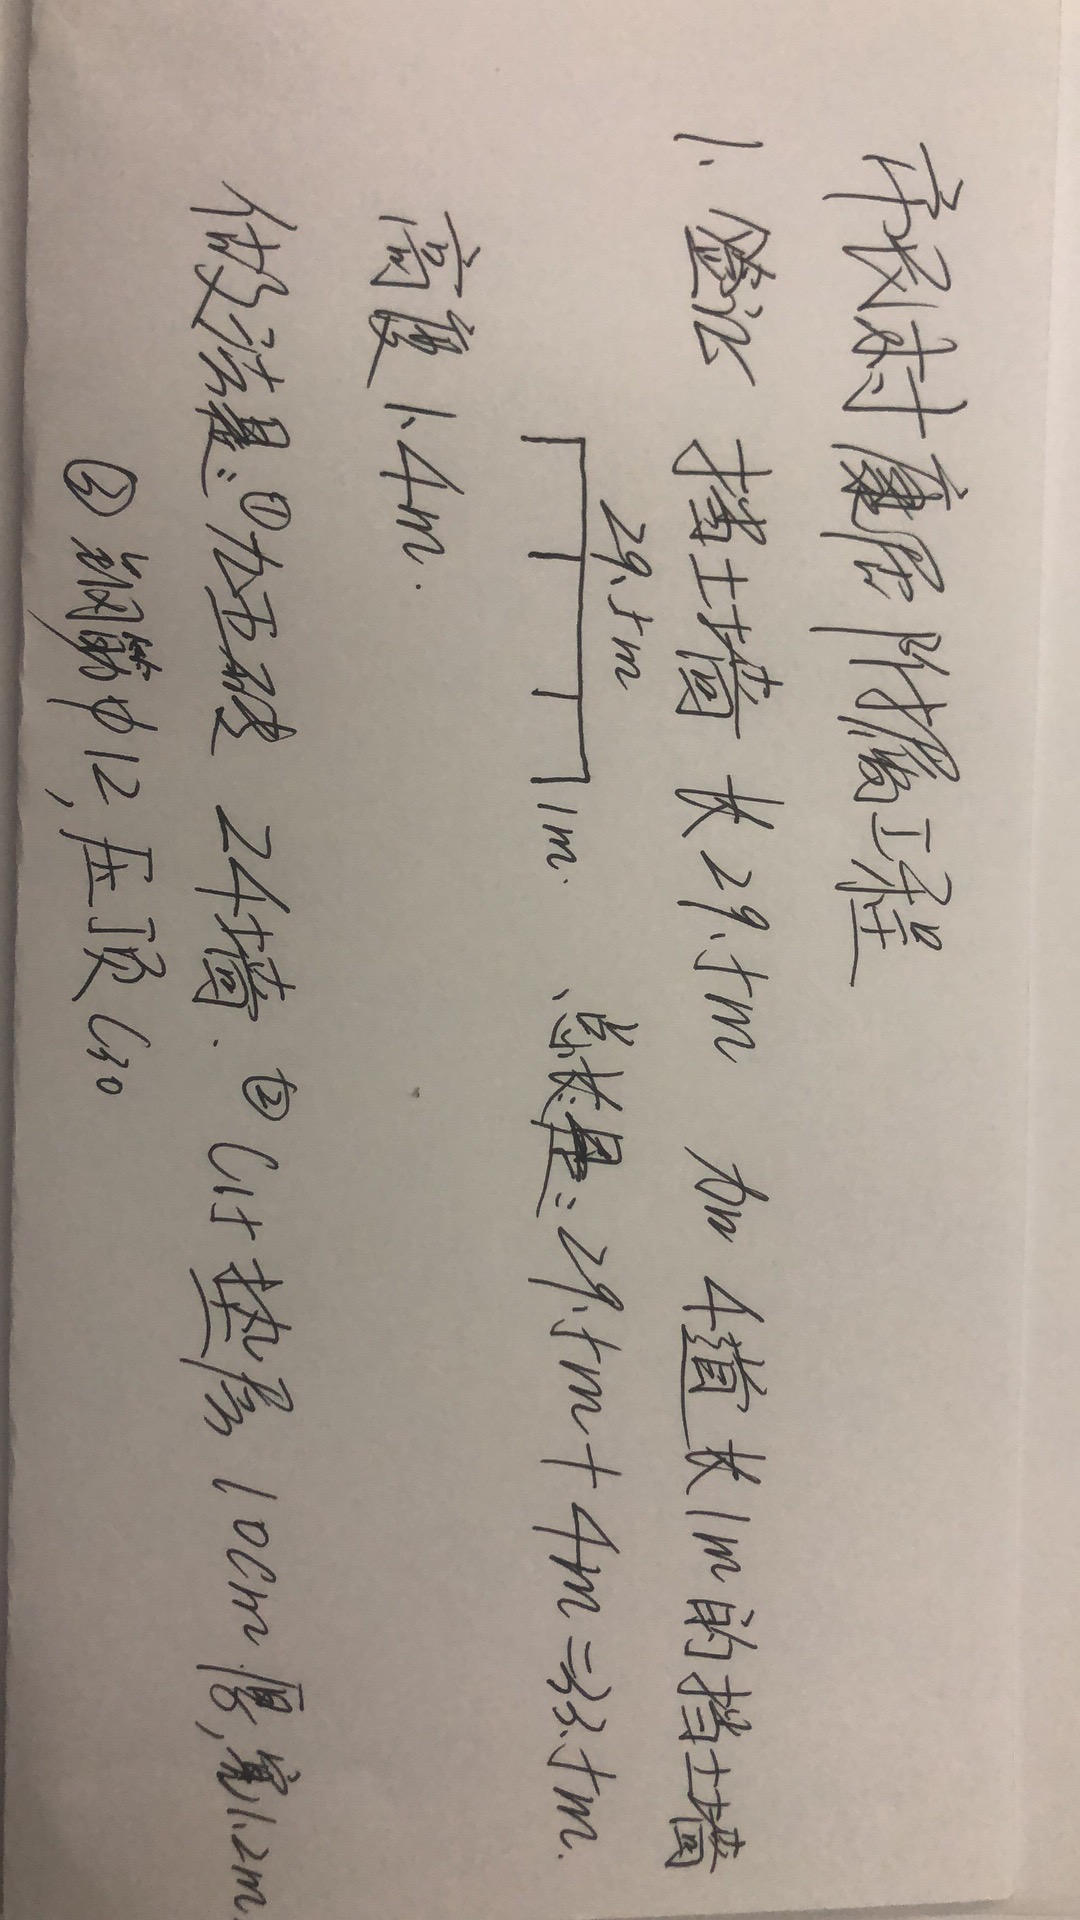 村康居附属工程
1. 签证 挡土墙 长29.5m 加4道长1m的挡土墙
29.5m
1m. 、总长是:29.5m+4m=33.5m.
高度1.4m.
做法是:① 24墙. ② C15垫层10cm厚,宽1.2m.
③ 钢筋φ12,压顶C30